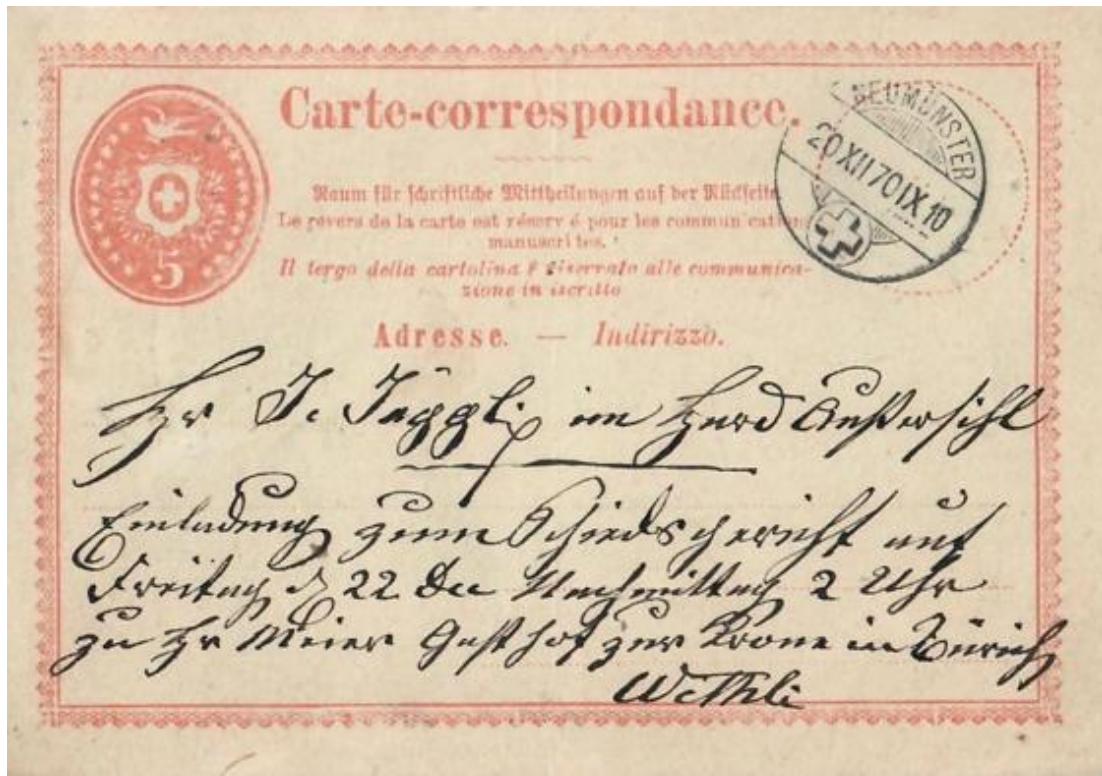 Carte-correspondance.
NEUMÜNSTER
20 XII 70 IX 10
Raum für schriftliche Mittheilungen auf der Rückseite
Le revers de la carte est réservé pour les communications
manuscrites.
Il tergo della cartolina è riserrato alle communica-
zione in iscritto
5
Adresse. — Indirizzo.
Hr J. im Hard Außersihl
Einladung zum Schiedsgericht auf
Freitag d 22 Dec Nachmittag 2 Uhr
zu Hr Meier Gasthof zur Krone in Zürich